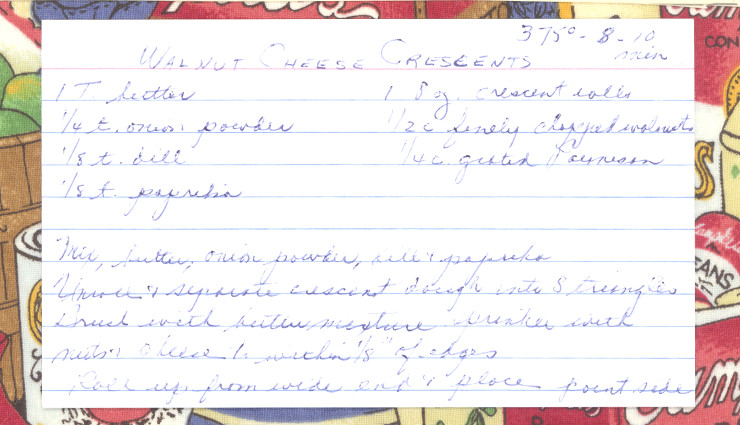 375° - 8 - 10 min
WALNUT CHEESE CRESCENTS
1 T. butter
1/4 t. onion powder
1/8 t. dill
1/8 t. paprika
1 8 oz. crescent rolls
1/2 c finely chopped walnuts
1/4 c. grated Parmesan
Mix, butter, onion powder, dill & paprika
Unroll & separate crescent dough into 8 triangles
Brush with butter mixture sprinkle with
nuts & cheese to within 1/8" of edges
Roll up from wide end & place point side
CON
EANS